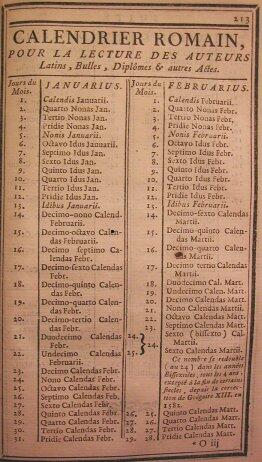 213
CALENDRIER ROMAIN,
POUR LA LECTURE DES AUTEURS
Latins, Bulles, Diplômes & autres Actes.
Jours du Mois. JANUARIUS.
1. Calendis Januarii.
2. Quarto Nonas Jan.
3. Tertio Nonas Jan.
4. Pridie Nonas Jan.
5. Nonis Januarii.
6. Octavo Idus Jan.
7. Septimo Idus Jan.
8. Sexto Idus Jan.
9. Quinto Idus Jan.
10. Quarto Idus Jan.
11. Tertio Idus Jan.
12. Pridie Idus Jan.
13. Idibus Januarii.
14. Decimo-nono Calend.
Februarii.
15. Decimo-octavo Calen-
das Februarii.
16. Decimo septimo Ca-
lendas Febr.
17. Decimo-sexto Calendas
Febr.
18. Decimo-quinto Calen-
das Febr.
19. Decimo-quarto Calen-
das Febr.
20. Decimo-tertio Calen-
das Febr.
21. Duodecimo Calendas
Febr.
22. Undecimo Calendas
Februarii.
23. Decimo Calendas Febr.
24. Nono Calendas Febr.
25. Octavo Calendas Febr.
26. Septimo Calendas Feb.
27. Sexto Calendas Febr.
28. Quinto Calendas Febr.
29. Quarto Calendas Febr.
30. Tertio Calendas Febr.
31. Pridie Calendas Febr.
Jours du Mois. FEBRUARIUS.
1. Calendis Februarii.
2. Quarto Nonas Febr.
3. Tertio Nonas Febr.
4. Pridie Nonas Febr.
5. Nonis Februarii.
6. Octavo Idus Febr.
7. Septimo Idus Febr.
8. Sexto Idus Febr.
9. Quinto Idus Febr.
10. Quarto Idus Febr.
11. Tertio Idus Febr.
12. Pridie Idus Febr.
13. Idibus Februarii.
14. Decimo-sexto Calendas
Martii.
15. Decimo-quinto Calen-
das Martii.
16. Decimo-quarto Calen-
das Martii.
17. Decimo tertio Calendas
Martii.
18. Duodecimo Cal. Mart.
19. Undecimo Cal. Mart.
20. Decimo Calendas Matt.
21. Nono Calendas Mart.
22. Octavo Calendas Mart.
23. Septimo Calendas Mart.
24. Sexto (bissexto) Cal.
Martii.
24. Sexto Calendas Martii.
Ce nombre se redouble
(au 24) dans les années
Bissextiles, tous les 4 ans,
excepté à la fin de certains
siecles depuis la correc-
tion de Grégoire XIII. en
1582.
25. 26. Quinto Calendas Mart.
26. 27. Quarto Calendas Mart.
27. 28. Tertio Calendas Mart.
28. 29. Pridie Calendas Mart.
O iij